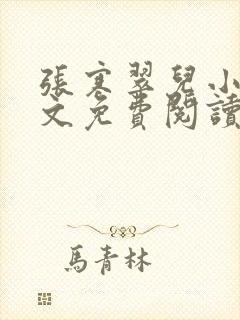 張寒翠兒小
文免費閱讀
馬青林